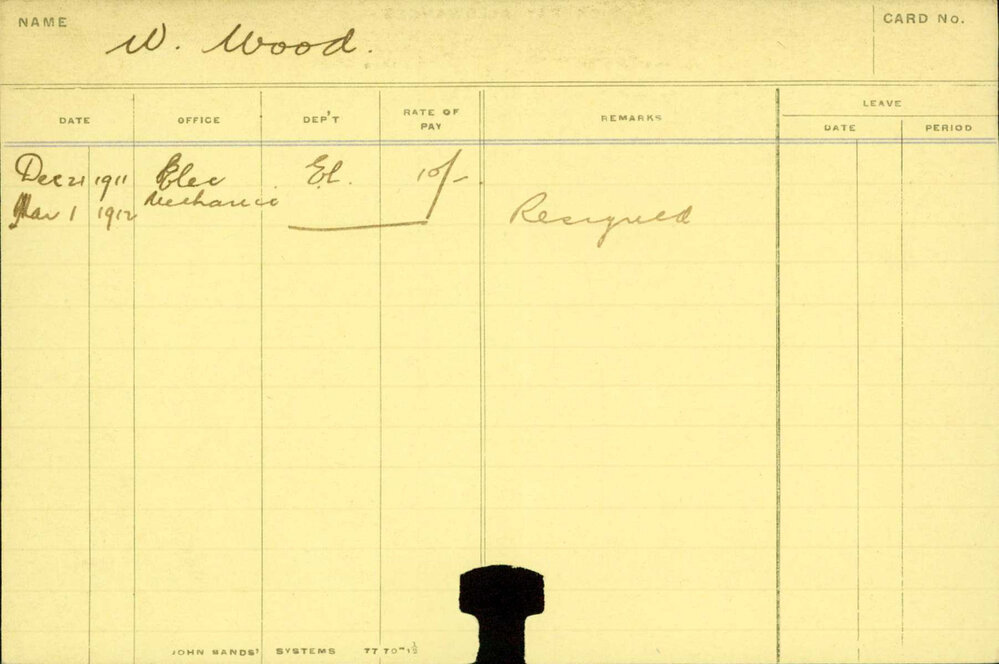 NAME W. Wood. CARD No.
DATE OFFICE DEP'T RATE OF PAY REMARKS LEAVE
DATE PERIOD
Dec 21 1911 Elec El. 10/-
Mar 1 1912 Mechanic Resigned
JOHN SANDS' SYSTEMS